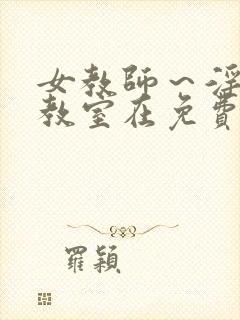 女教師～淫
教室在免費
羅穎